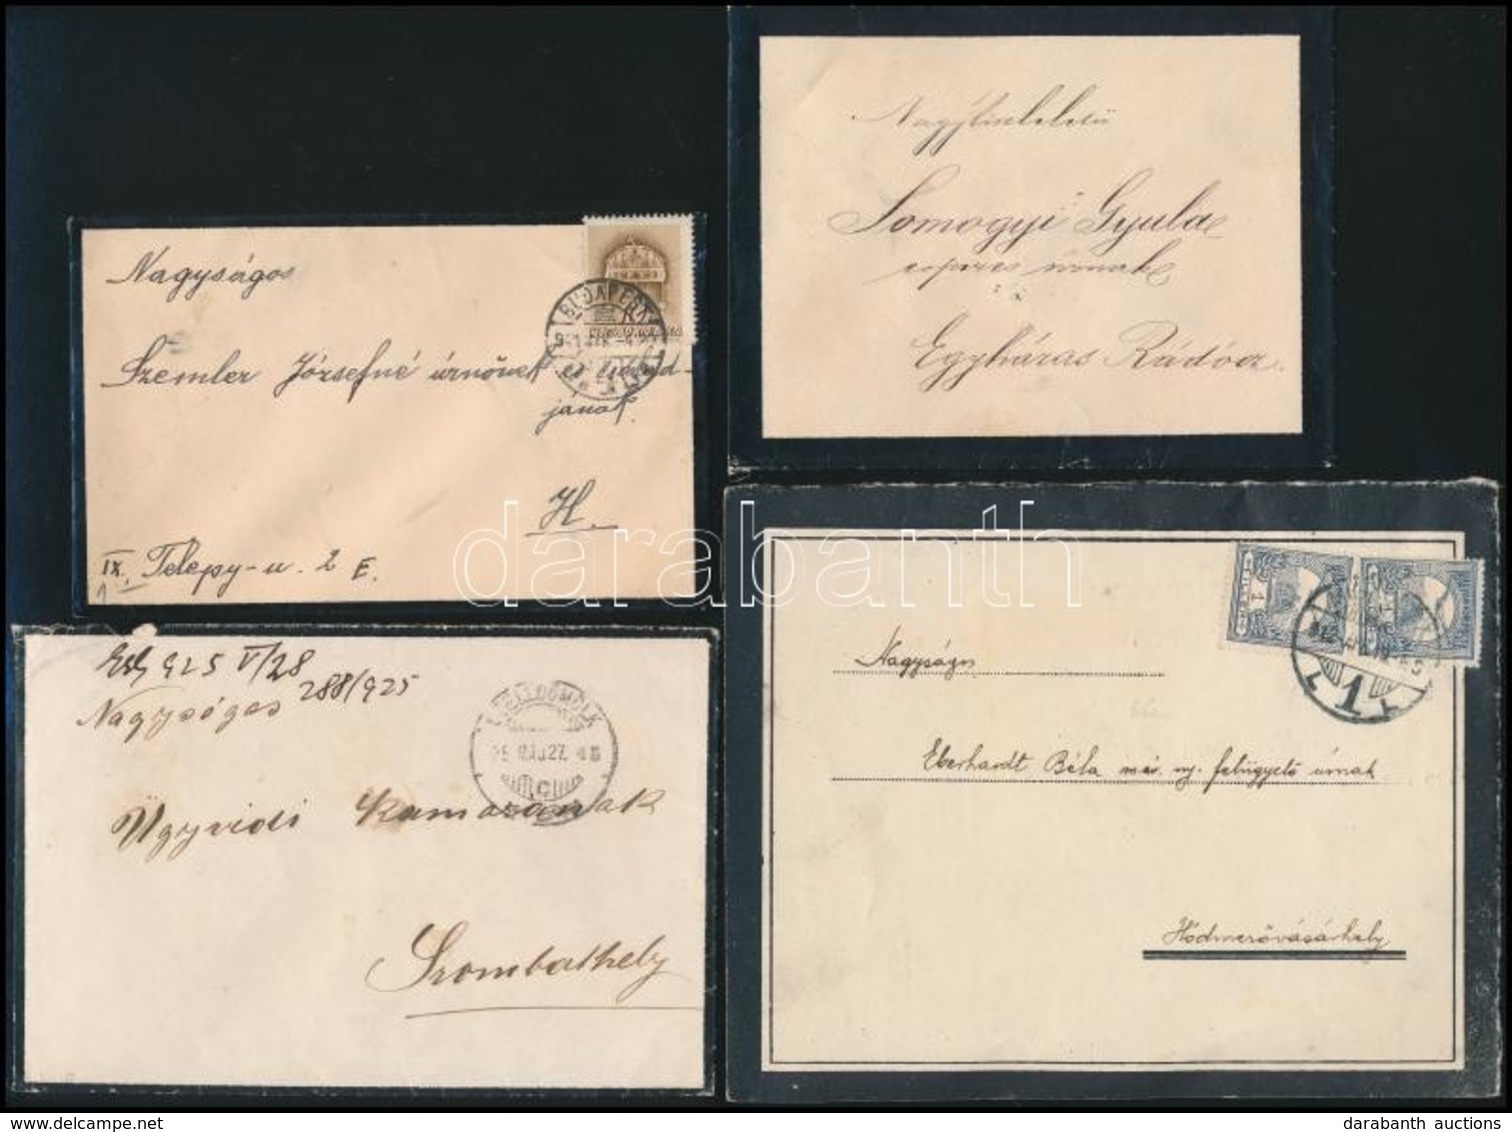 Nagyságos
Szemler Józsefné úrnőnek és család-
jának.
H.
IX. Telepy-u. 2 E.
BUDAPEST
Nagytiszteletü
Somogyi Gyula
esperes úrnak
Egyházas Rádócz.
925 V/28
288/925
Nagyságos
Ügyvidi Kamarának
Szombathely
CELLDÖMÖLK
Nagyságos
Eberhardt Béla máv. ny. felügyelő úrnak
Hódmezővásárhely
1
darabanth
darabanth auctions